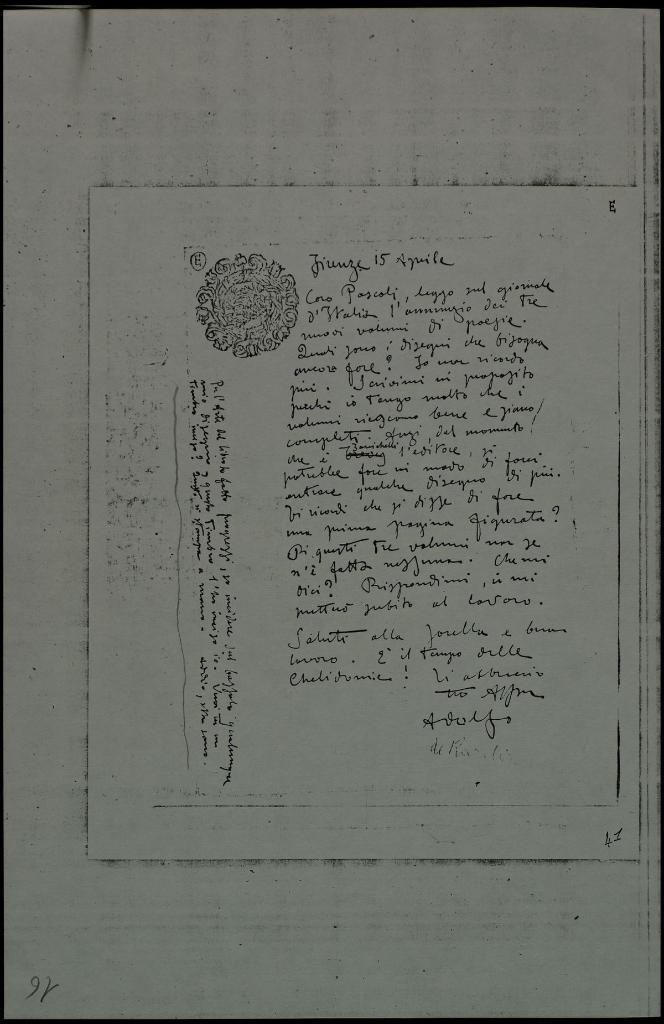 E
E
Firenze 15 Aprile
Caro Pascoli, leggo sul giornale
d'Italia l'annunzio dei tre
nuovi volumi di poesie.
Quali sono i disegni che bisogna
ancora fare? Io non ricordo
più. Scrivimi in proposito
perchè io tengo molto che i
volumi riescano bene e siano
completi. Anzi, dal momento
che è Zanichelli l'editore, si
potrebbe fare in modo di farci
entrare qualche disegno di più.
Vi ricordi che si disse di fare
una prima pagina figurata?
Di questi tre volumi non se
n'è fatta nessuna. Che mi
dici? Rispondimi, e mi
metterò subito al lavoro.
Saluti alla sorella e buon
lavoro. È il tempo delle
Chelidonie! Ti abbraccio
tuo
Adolfo
de
Nell'Arte del libro ho fatto progressi, so incidere sul bussolo qualunque
mio disegno e questo timbro l'ho inciso io. Vuoi un
timbro inciso? stampa a mano. Addio, sta sano.
41
97